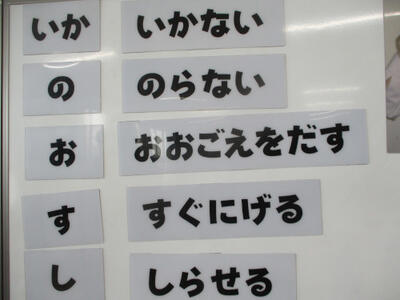 いか いかない
の のらない
お おおごえをだす
す すぐにげる
し しらせる